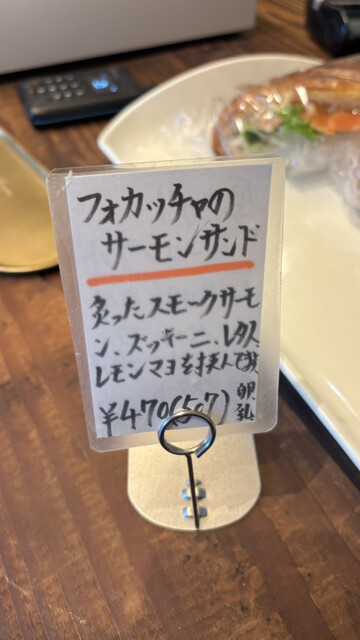 フォカッチャの
サーモンサンド
炙ったスモークサーモ
ン、ズッキーニ、レタス
レモンマヨを挟んで
¥470(507)
卵乳